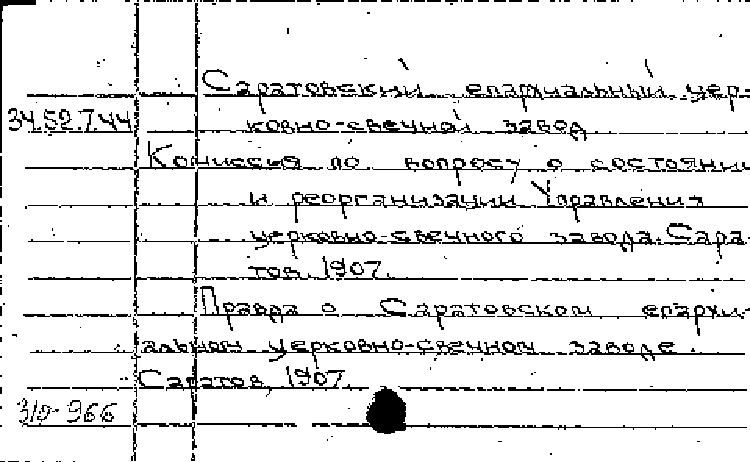 Саратовский епархиальный цер-
34.52.7.44 ковно-свечной завод
Комиссия по вопросу о состоянии
и реорганизации Управления
церковно-свечного завода. Сара-
тов, 1907.
Правда о Саратовском епархи-
альном церковно-свечном заводе.
Саратов, 1907.
966